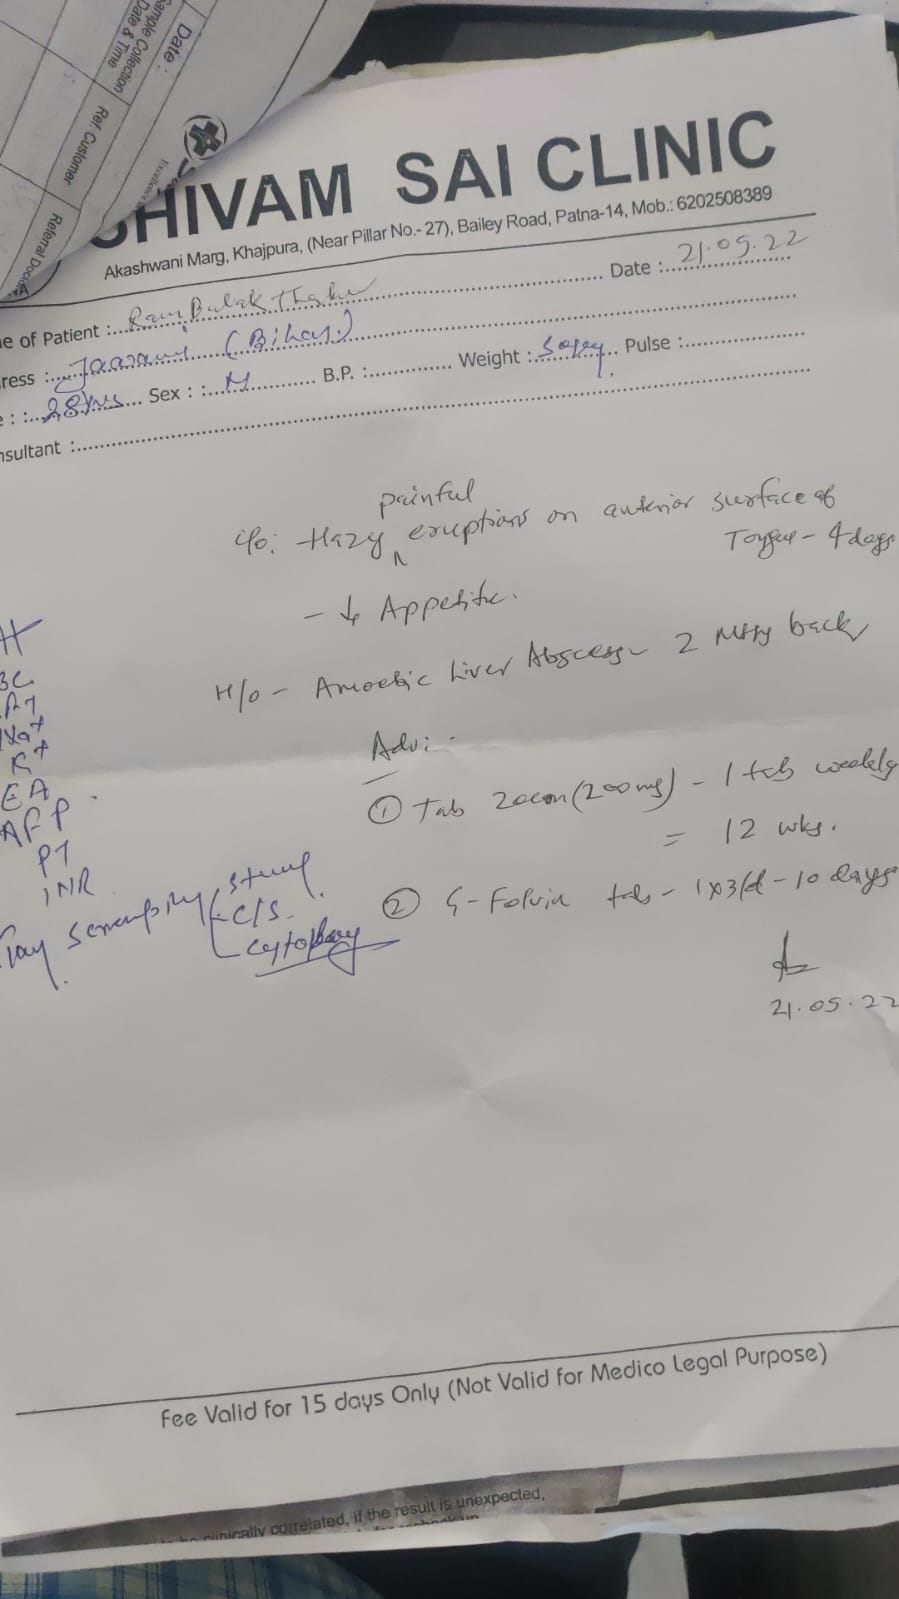 Sample Collection
Date & Time
Date :
Ref. Customer
Referral Doctor
SHIVAM SAI CLINIC
Akashwani Marg, Khajpura, (Near Pillar No.- 27), Bailey Road, Patna-14, Mob.: 6202508389
Date : 21.05.22
e of Patient : Ram Balak
ress : (Bihar)
: 28yrs Sex : : M B.P. : Weight : Pulse :
nsultant :
painful
c/o: Hazy eruptions on anterior surface of
Tongue - 4 days
- ↓ Appetite.
H/o - Amoebic Liver Abscess - 2 back
Adv: -
① Tab Zocon (200 mg) - 1 tab weekly
= 12 wks.
② tab - 1x3/d - 10 days
21.05.22
BC
Na+
K+
EA
AFP
PT
INR
C/S
cytology
Fee Valid for 15 days Only (Not Valid for Medico Legal Purpose)
clinically correlated, if the result is unexpected,